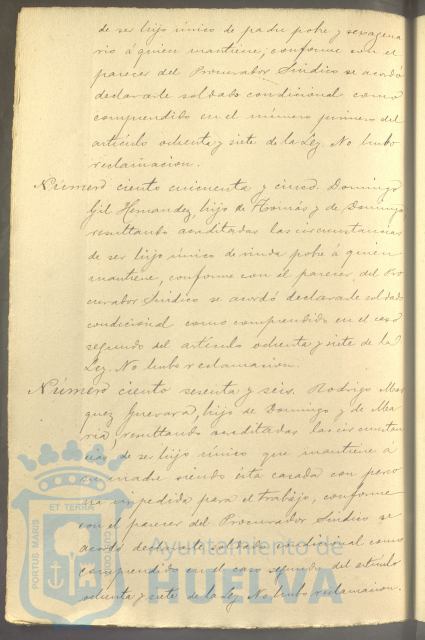 de ser hijo único de padre pobre y sexagena
rio á quien mantiene, conforme con el
parecer del Procurador Síndico se acordó
declararle soldado condicional como
comprendido en el número primero del
artículo ochenta y siete de la Ley. No hubo
reclamacion.
Número ciento cincuenta y cinco. Domingo
Gil Hernandez, hijo de Tomás y de Dominga
resultando acreditadas las circunstancias
de ser hijo único de viuda pobre á quien
mantiene, conforme con el parecer del Pro
curador Síndico se acordó declararle soldado
condicional como comprendido en el caso
segundo del artículo ochenta y siete de la
Ley. No hubo reclamacion.
Número ciento sesenta y seis. Rodrigo Mar
quez Guevara, hijo de Domingo y de Ma
ria, resultando acreditadas las circunstan
cias de ser hijo único que mantiene á
su madre siendo ésta casada con perso
na impedida para el trabajo, conforme
con el parecer del Procurador Síndico se
acordó declararle soldado condicional como
comprendido en el caso segundo del artículo
ochenta y siete de la Ley. No hubo reclamacion.
PORTUS MARIS
ET TERRA
CUSTODIA
Ayuntamiento de
HUELVA